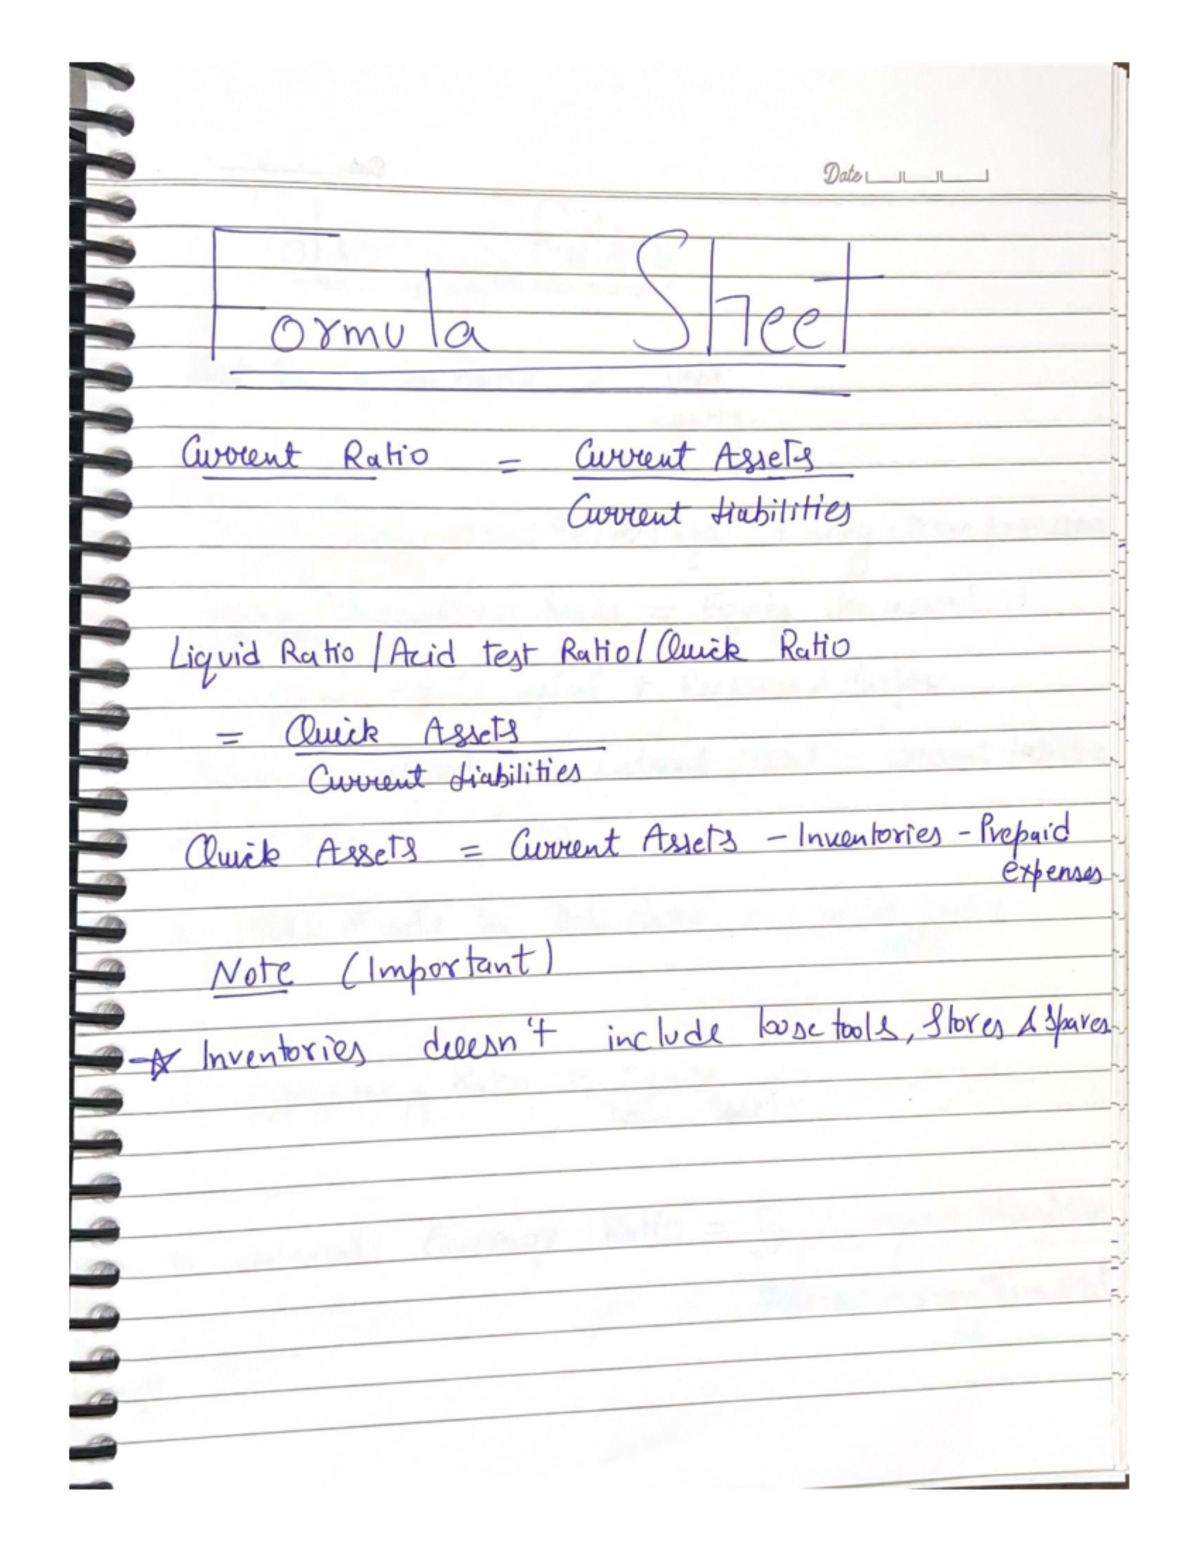 Date
Formula Sheet
Current Ratio = Current Assets
Current Liabilities
Liquid Ratio / Acid test Ratio / Quick Ratio
= Quick Assets
Current Liabilities
Quick Assets = Current Assets - Inventories - Prepaid
expenses
Note (Important)
☆ Inventories doesn't include loose tools, Stores & Spares